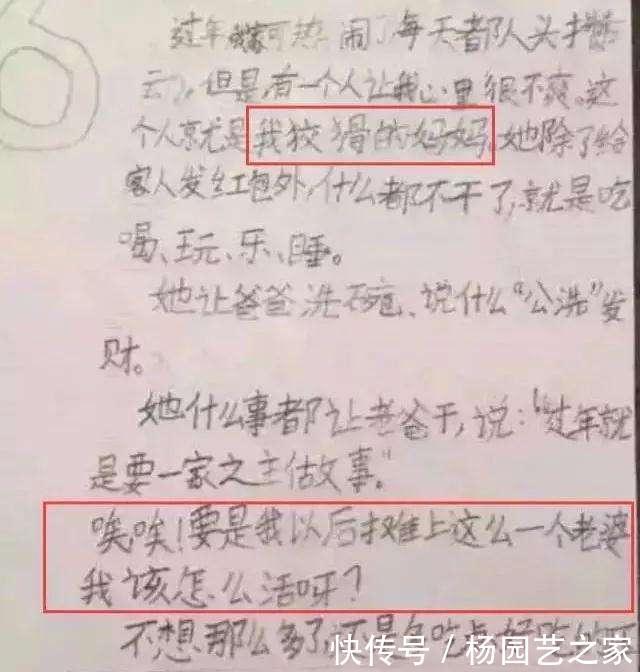 过年我家可热闹了每天都人头攒
云，但是，有一个人让我心里很不爽。这
个人就是我狡猾的妈妈，她除了给
客人发红包外，什么都不干了，就是吃
喝、玩、乐、睡。
她让爸爸洗碗、说什么“公洗”发
财。
她什么事都让老爸干，说：“过年就
是要一家之主估故事。”
唉唉！要是我以后摊上这么一个老婆
我该怎么活呀？
不想那么多了，还是
快传号 / 杨园艺之家